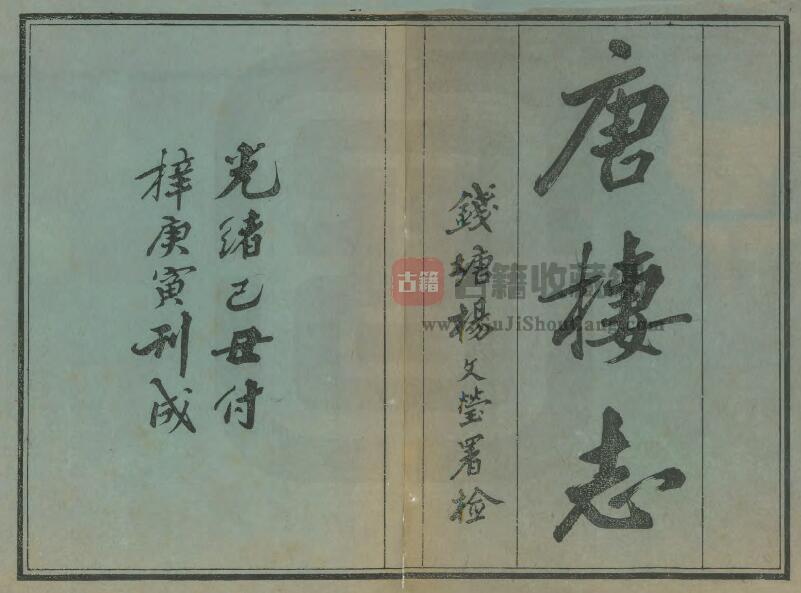 唐棲志
錢塘楊文瑩署檢
光緒己丑付
梓庚寅刊成
古籍
古籍收藏